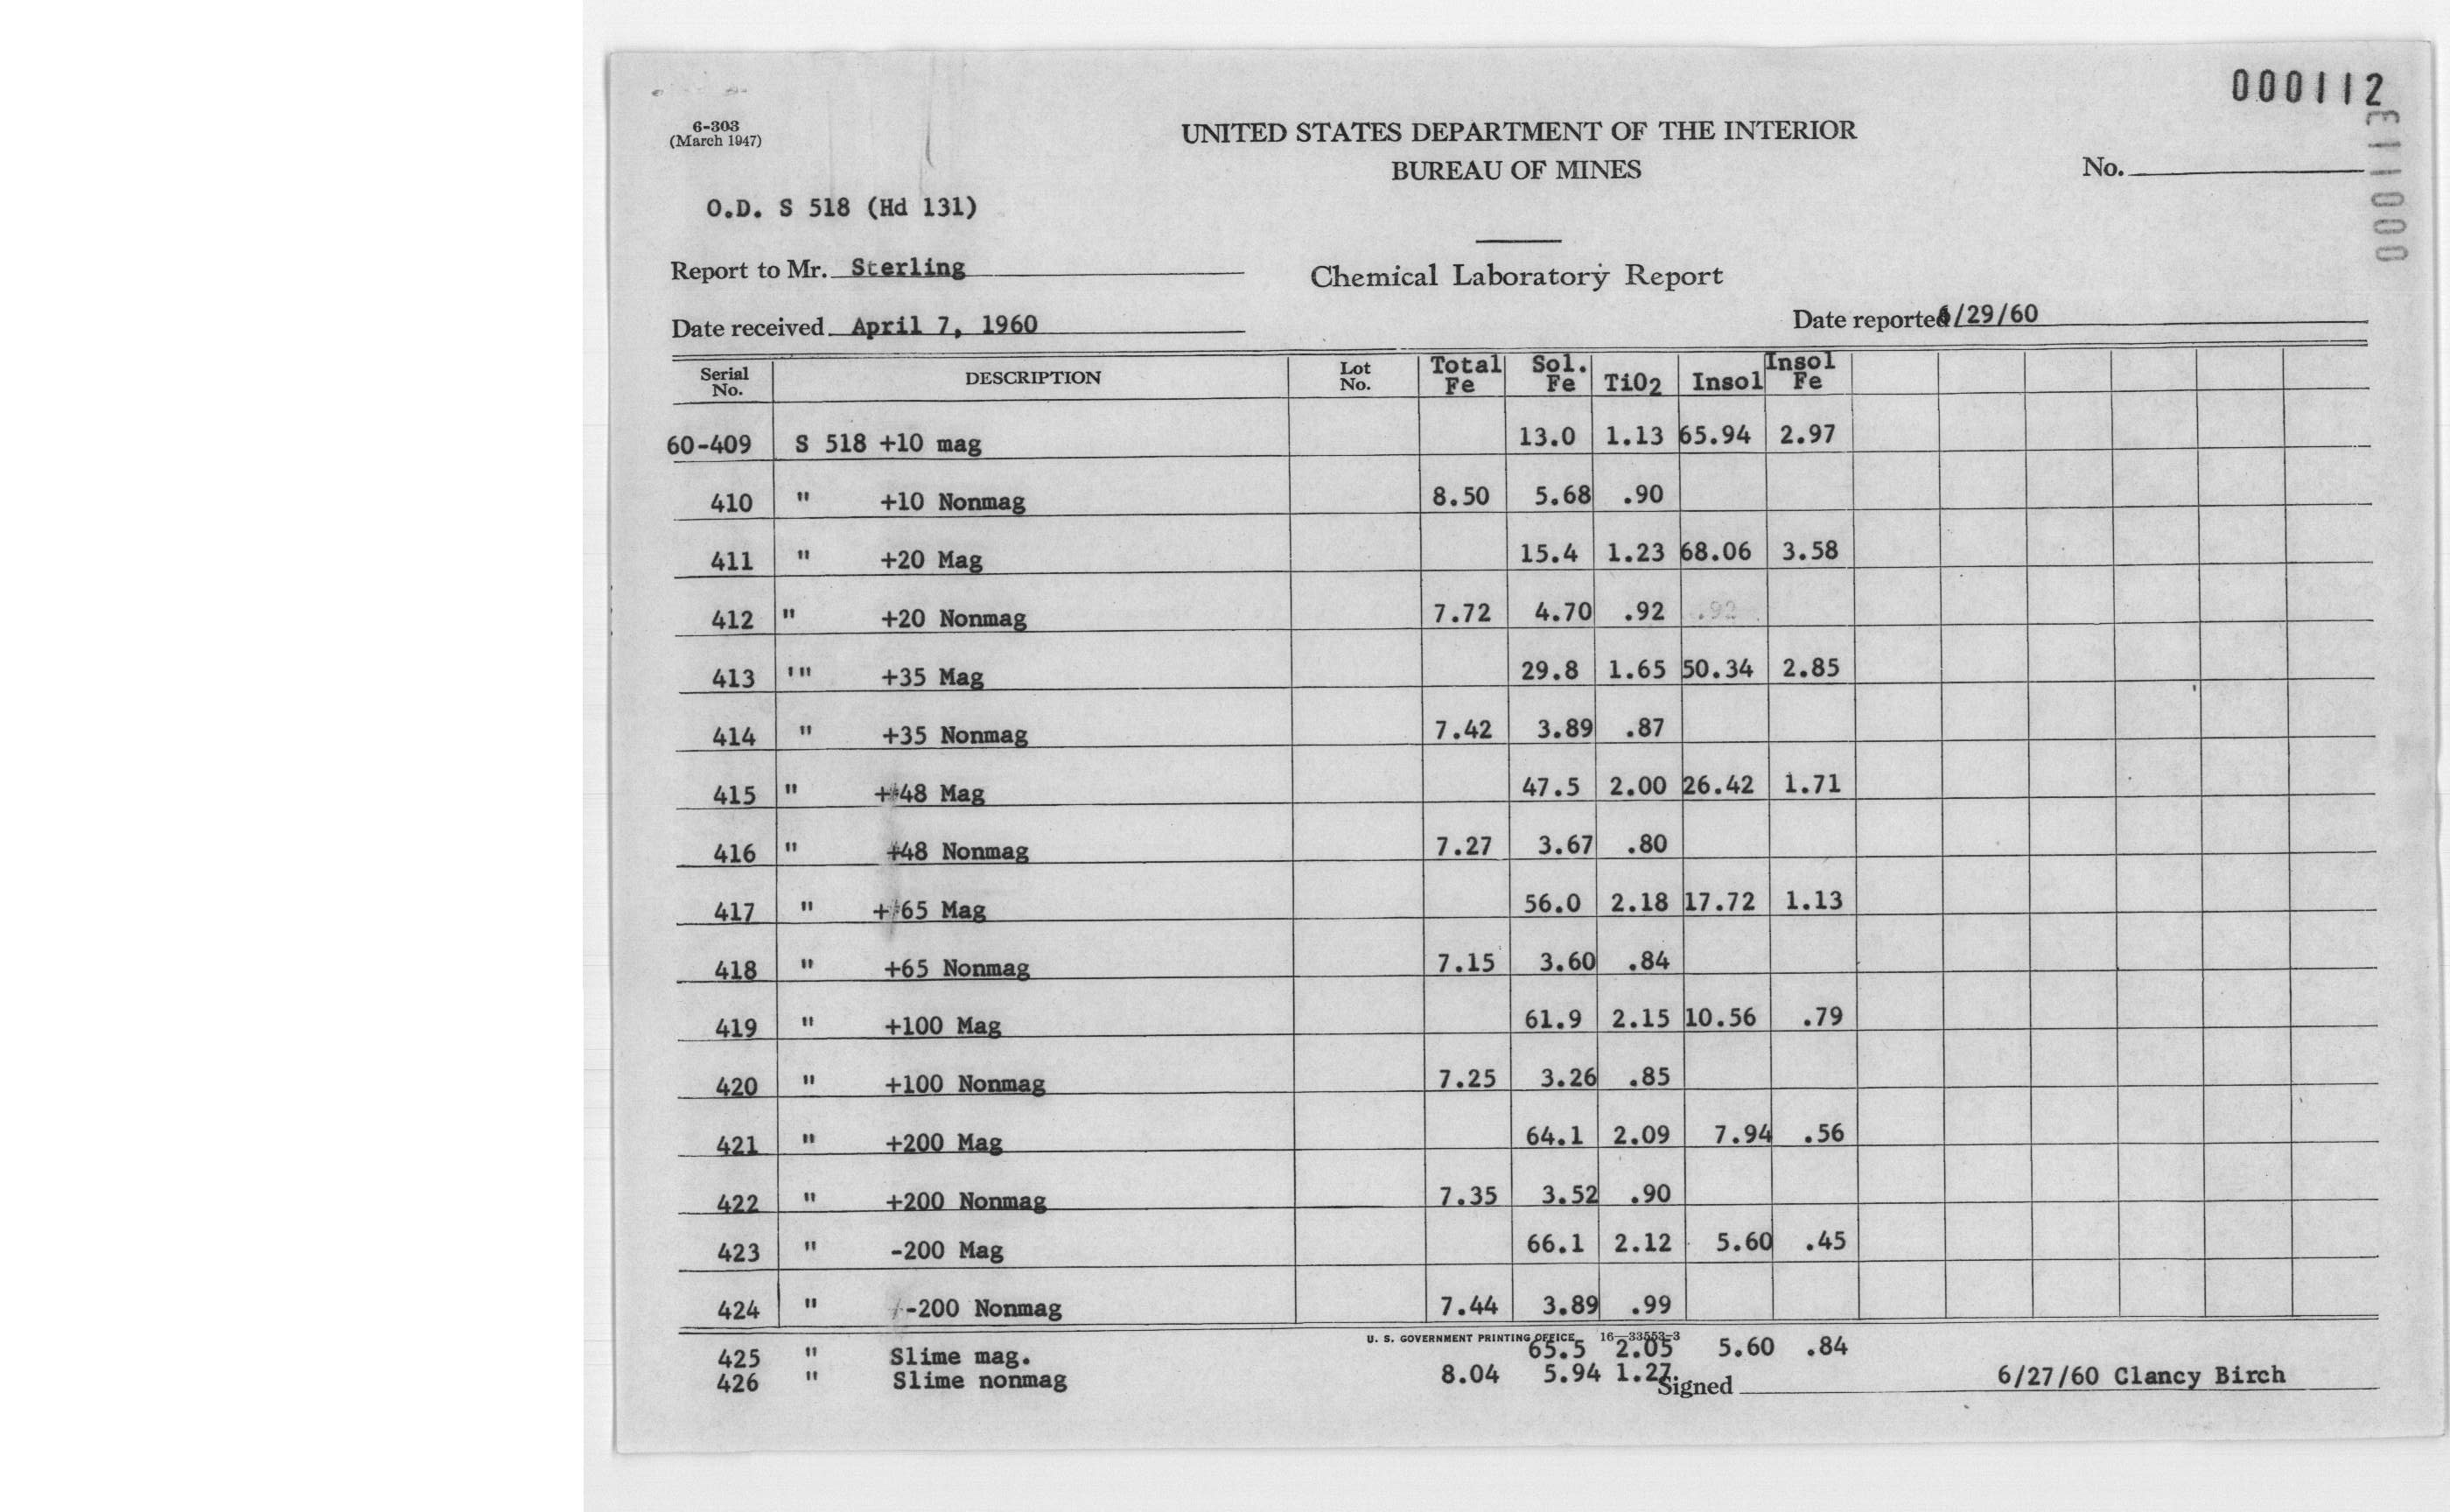 000112
000113
6-303
(March 1947)
UNITED STATES DEPARTMENT OF THE INTERIOR
BUREAU OF MINES
No.
O.D. S 518 (Hd 131)
Report to Mr. Sterling
Chemical Laboratory Report
Date received April 7, 1960
Date reported 6/29/60
Serial No. DESCRIPTION Lot No. Total Fe Sol. Fe TiO2 Insol Insol Fe
60-409 S 518 +10 mag 13.0 1.13 65.94 2.97
410 " +10 Nonmag 8.50 5.68 .90
411 " +20 Mag 15.4 1.23 68.06 3.58
412 " +20 Nonmag 7.72 4.70 .92 .92
413 '" +35 Mag 29.8 1.65 50.34 2.85
414 " +35 Nonmag 7.42 3.89 .87
415 " +48 Mag 47.5 2.00 26.42 1.71
416 " +48 Nonmag 7.27 3.67 .80
417 " +65 Mag 56.0 2.18 17.72 1.13
418 " +65 Nonmag 7.15 3.60 .84
419 " +100 Mag 61.9 2.15 10.56 .79
420 " +100 Nonmag 7.25 3.26 .85
421 " +200 Mag 64.1 2.09 7.94 .56
422 " +200 Nonmag 7.35 3.52 .90
423 " -200 Mag 66.1 2.12 5.60 .45
424 " -200 Nonmag 7.44 3.89 .99
U. S. GOVERNMENT PRINTING OFFICE 16—33553-3
425 " Slime mag. 65.5 2.05 5.60 .84
426 " Slime nonmag 8.04 5.94 1.27
Signed 6/27/60 Clancy Birch